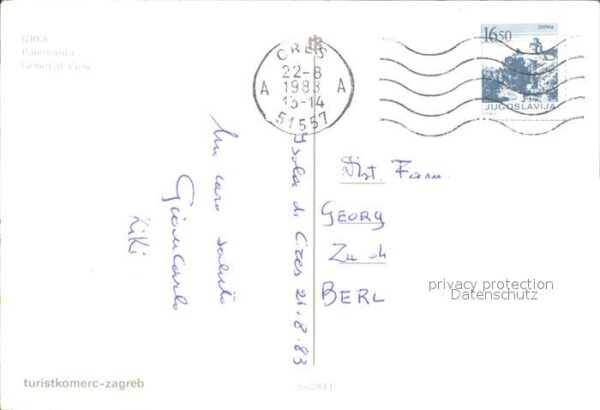 CRES
Panorama
General view
CRES
22-8
1983
13-14
A A
51557
16.50
JUGOSLAVIJA
Isola di Cres 21.8.83
Un caro saluto
Giancarlo
Kiki
Dist. Fam.
GEORG
BERL
privacy protection
Datenschutz
turistkomerc-zagreb
S-2811